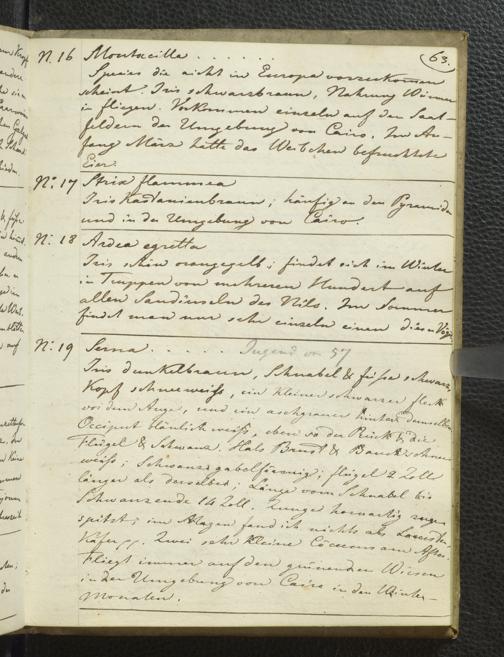 63.
N. 16 Montacilla . . . . . .
Species die nicht in Europa vorzukommen
scheint. Iris schwarzbraun, Nahrung Würmer
in fliegen. Vorkommen einzeln auf den Saat-
feldern der Umgebung von Cairo. Im An-
fang März hatte das Weibchen befruchtete
Eier.
N: 17 Strix flammea
Iris Kastanienbraun; häufig an den Pyramiden
und in der Umgebung von Cairo.
N: 18 Ardea egretta
Iris schön orangegelb; findet sich im Winter
in Truppen von mehreren Hundert auf
allen Sandinseln des Nils. Im Sommer
findet man nur sehr einzeln einen dieser Vögel
N: 19 Serna . . . . . Jugend von 57
Iris dunkelbraun, Schnabel & füsse schwarz,
Kopf schneeweiss, ein kleiner schwarzer fleck
vor dem Auge, und ein aschgrauer hinter demselben
Occiput weiss, eben so der Rück & die
Flügel & Schwanz. Hals Brust & Bauch schnee-
weiss; Schwanz gabelförmig; flügel 2 Zoll
länger als derselbe; Länge vom Schnabel bis
Schwanzende 14 Zoll. Zunge hornartig zuge-
spitzt; im Magen fand ich nichts als
Käfer pp. Zwei sehr kleine Cöcums am After.
Fliegt immer auf den grünenden Wiesen
in der Umgebung von Cairo in den Winter-
Monaten.